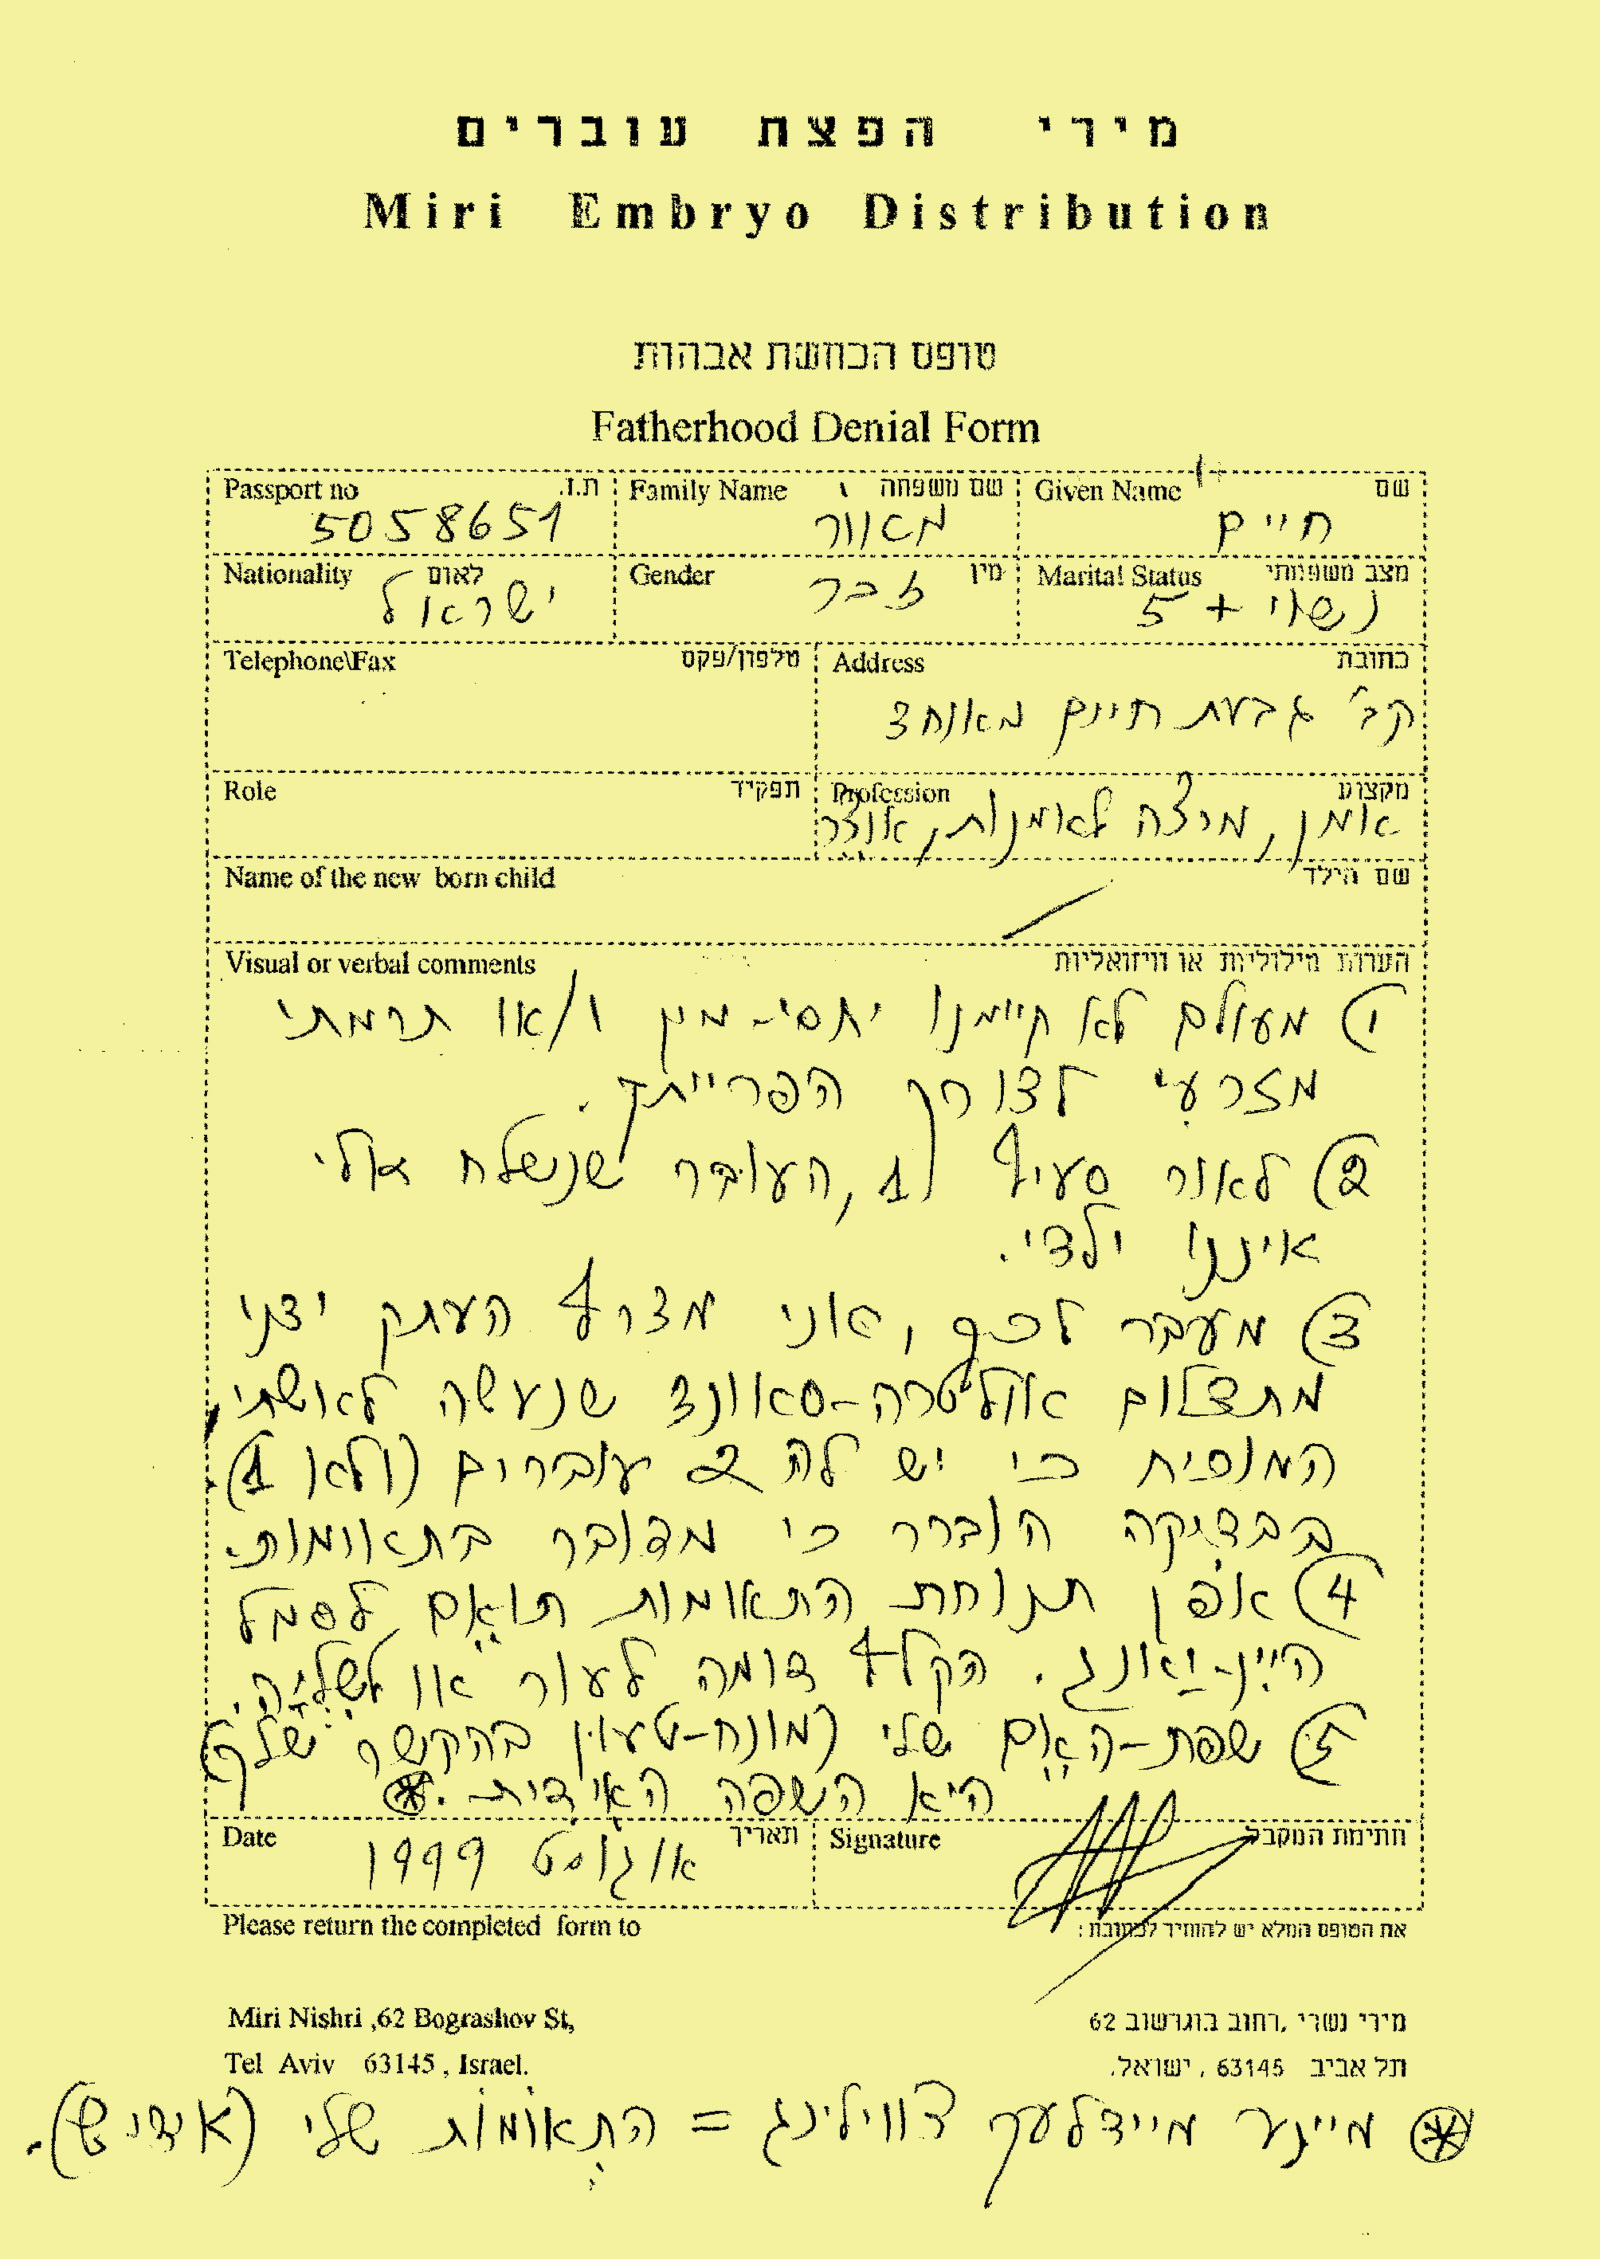 מירי הפצת עוברים
Miri Embryo Distribution
טופס הכחשת אבהות
Fatherhood Denial Form
Passport no ת.ז.
5058651
Family Name שם משפחה
מאור
Given Name שם
חיים
Nationality לאום
ישראל
Gender מין
זכר
Marital Status מצב משפחתי
נשוי + 5
Telephone\Fax טלפון/פקס
Address כתובת
קב' גבעת חיים מאוחד
Role תפקיד
Profession מקצוע
אומן, מרצה לאמנות, אוצר
Name of the new born child שם הילד
Visual or verbal comments הערות מילוליות או וויזואליות
1) מעולם לא קיימנו יחסי-מין ו/או תרמתי
מזרעי לצורך הפרוייקט.
2) לאור סעיף 1, העובר שנשלח אלי
איננו ילדי.
3) מעבר לכך, אני מצרף העתק
מתצלום אולטרה-סאונד שנעשה לאשתי,
המוכיח כי יש לה 2 עוברים (ולא 1).
בבדיקה הוברר כי מדובר בתאומות.
4) אופן תנוחת התאומות תואם לסמל
היין-יאנג. הקלף דומה לעור או לשליה.
5) שפת-האם שלי (מונח-טעון בהקשר שלך)
היא השפה האידית.⊛
Date תאריך
אוגוסט 1999
Signature חתימת המקבל
Please return the completed form to את הטופס המלא יש להחזיר לכתובת :
Miri Nishri ,62 Bograshov St, מירי נשרי ,רחוב בוגרשוב 62
Tel Aviv 63145 , Israel. תל אביב 63145 , ישראל.
⊛ מיינע מיידלעך צווילינג = התאומות שלי (אידיש).